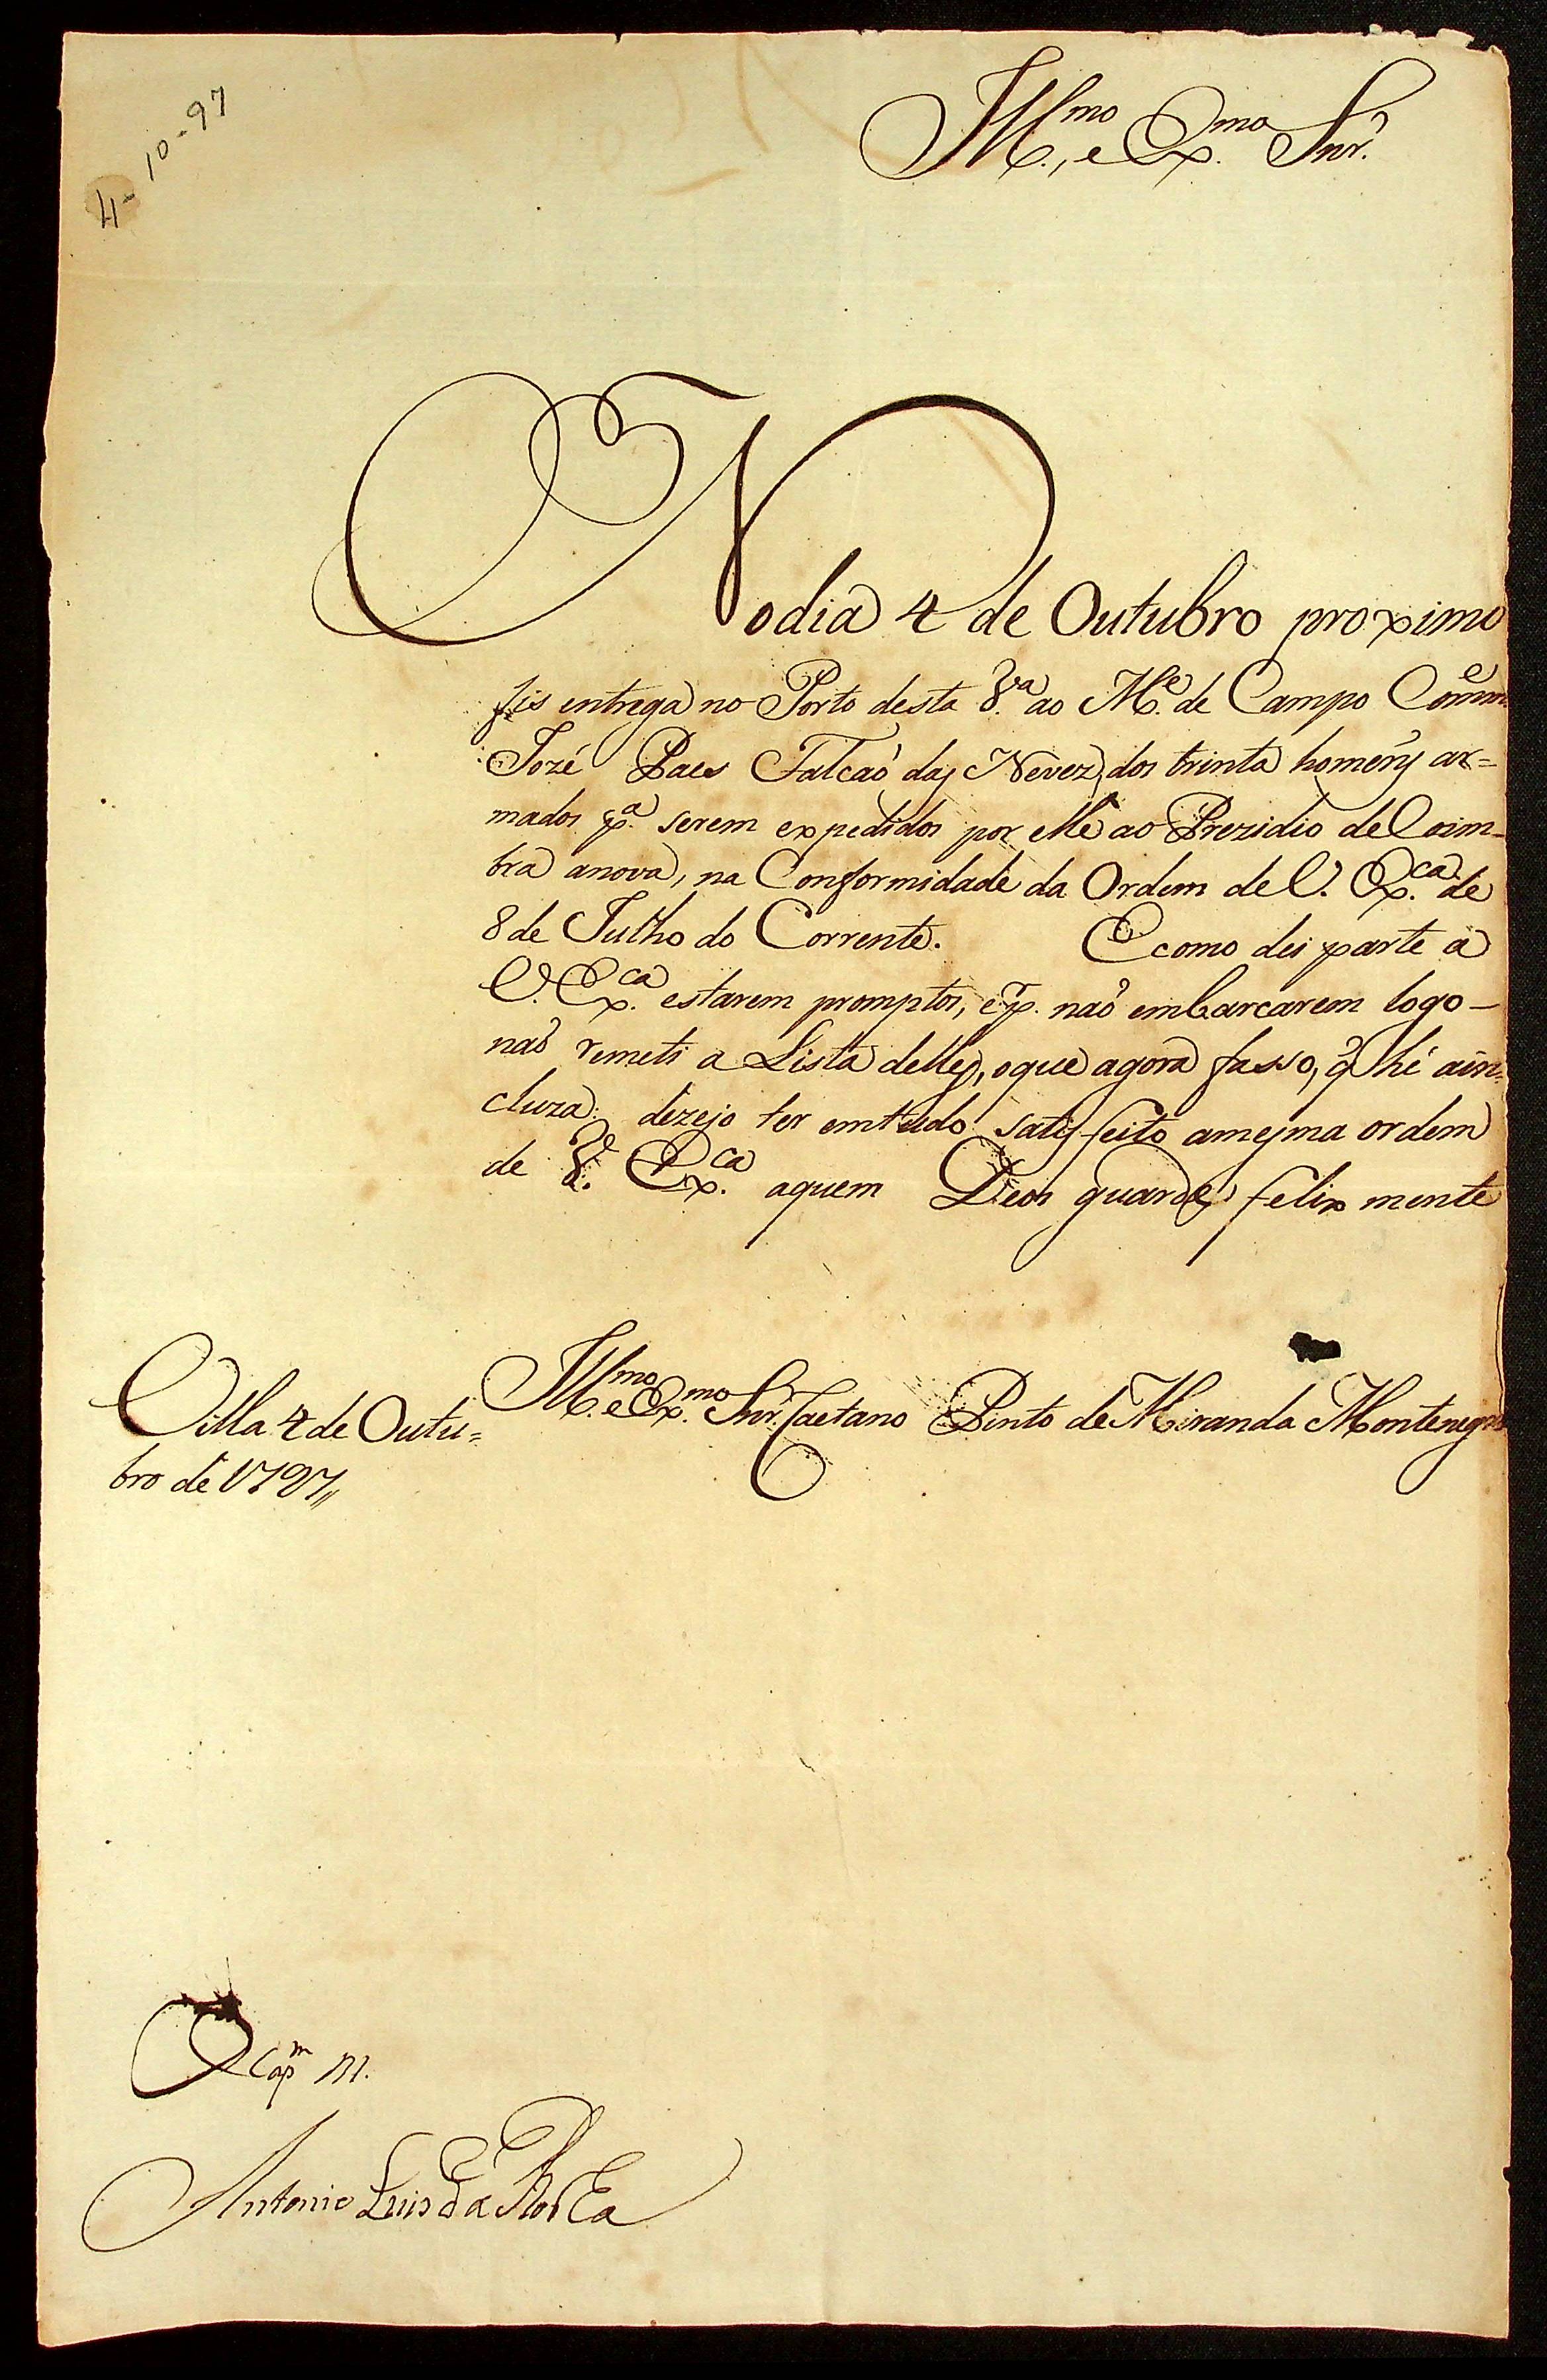 4-10-97
Ill.mo, e Ex.mo Snr.
No dia 4 de Outubro proximo
fis entrega no Porto desta V.a ao M.e de Campo Comm.e
Jozé Paes Falcaõ das Nevez, dos trinta homens ar=
mados p.a serem expedidos por elle ao Prezidio de Coim-
bra anova, na Conformidade da Ordem de V. Ex.ca de
8 de Julho do Corrente. E como dei parte a
V. Ex.ca estarem promptos, e p. naõ embarcarem logo-
naõ remeti a Lista delles, oque agora fasso, q̃ hé ain-
cluza: dezejo ter emtudo satisfeito amesma ordem
de V. Ex.ca aquem Deos guarde felix mente
Ill.mo e Ex.mo Snr. Caetano Pinto de Miranda Montenegro
Villa 4 de Outu=
bro de 1797,,
O Cap.m M.
Antonio Luis da Rocha